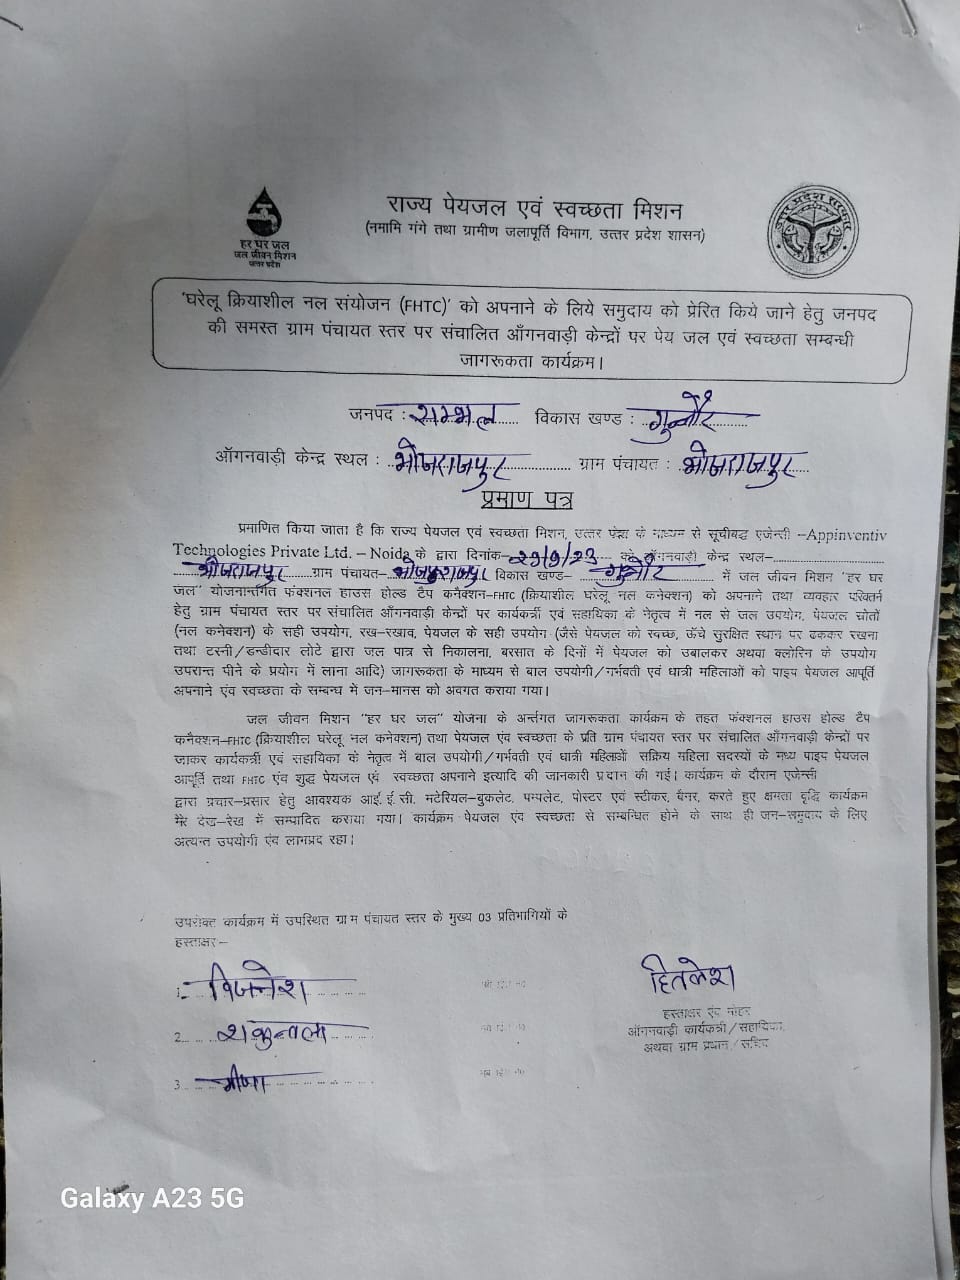 राज्य पेयजल एवं स्वच्छता मिशन
(नमामि गंगे तथा ग्रामीण जलापूर्ति विभाग, उत्तर प्रदेश शासन)
हर घर जल
जल जीवन मिशन
उत्तर प्रदेश
उत्तर प्रदेश सरकार
'घरेलू क्रियाशील नल संयोजन (FHTC)' को अपनाने के लिये समुदाय को प्रेरित किये जाने हेतु जनपद
की समस्त ग्राम पंचायत स्तर पर संचालित आँगनवाड़ी केन्द्रों पर पेय जल एवं स्वच्छता सम्बन्धी
जागरूकता कार्यक्रम।
जनपद : सम्भल विकास खण्ड : गुन्नौर
आँगनवाड़ी केन्द्र स्थल : भोजराजपुर ग्राम पंचायत : भोजराजपुर
प्रमाण पत्र
प्रमाणित किया जाता है कि राज्य पेयजल एवं स्वच्छता मिशन, उत्तर प्रदेश के माध्यम से सूचीबद्ध एजेन्सी –Appinventiv
Technologies Private Ltd. – Noida के द्वारा दिनांक– को आँगनवाड़ी केन्द्र स्थल–
भोजराजपुर ग्राम पंचायत– विकास खण्ड– गुन्नौर में जल जीवन मिशन "हर घर
जल" योजनान्तर्गत फंक्शनल हाउस होल्ड टैप कनैक्शन–FHTC (क्रियाशील घरेलू नल कनेक्शन) को अपनाने तथा व्यवहार परिवर्तन
हेतु ग्राम पंचायत स्तर पर संचालित आँगनवाड़ी केन्द्रों पर कार्यकर्त्री एवं सहायिका के नेतृत्व में नल से जल उपयोग, पेयजल स्रोतों
(नल कनेक्शन) के सही उपयोग, रख–रखाव, पेयजल के सही उपयोग (जैसे पेयजल को स्वच्छ, ऊँचे सुरक्षित स्थान पर ढककर रखना
तथा टस्नी/डन्डीदार लोटे द्वारा जल पात्र से निकालना, बरसात के दिनों में पेयजल को उबालकर अथवा क्लोरिन के उपयोग
उपरान्त पीने के प्रयोग में लाना आदि) जागरूकता के माध्यम से बाल उपयोगी/गर्भवती एवं धात्री महिलाओं को पाइप पेयजल आपूर्ति
अपनाने एंव स्वच्छता के सम्बन्ध में जन–मानस को अवगत कराया गया।
जल जीवन मिशन "हर घर जल" योजना के अर्न्तगत जागरूकता कार्यक्रम के तहत फंक्शनल हाउस होल्ड टैप
कनैक्शन–FHTC (क्रियाशील घरेलू नल कनेक्शन) तथा पेयजल एंव स्वच्छता के प्रति ग्राम पंचायत स्तर पर संचालित आँगनवाड़ी केन्द्रों पर
जाकर कार्यकर्त्री एवं सहायिका के नेतृत्व में बाल उपयोगी/गर्भवती एवं धात्री महिलाओं सक्रिय महिला सदस्यों के मध्य पाइप पेयजल
आपूर्ति तथा FHTC एंव शुद्ध पेयजल एवं स्वच्छता अपनाने इत्यादि की जानकारी प्रदान की गई। कार्यक्रम के दौरान एजेन्सी
द्वारा प्रचार–प्रसार हेतु आवश्यक आई.ई.सी. मटेरियल–बुकलेट, पम्पलेट, पोस्टर एवं स्टीकर, बैनर, करते हुए क्षमता वृद्धि कार्यक्रम
मेरे देख–रेख में सम्पादित कराया गया। कार्यक्रम पेयजल एंव स्वच्छता से सम्बन्धित होने के साथ ही जन–समुदाय के लिए
अत्यन्त उपयोगी एंव लाभप्रद रहा।
उपरोक्त कार्यक्रम में उपस्थित ग्राम पंचायत स्तर के मुख्य 03 प्रतिभागियों के
हस्ताक्षर–
1. विजनेश
2. शकुन्तला
3.
हितलेश
हस्ताक्षर एंव मोहर
आँगनवाड़ी कार्यकर्त्री/सहायिका,
अथवा ग्राम प्रधान/सचिव
Galaxy A23 5G